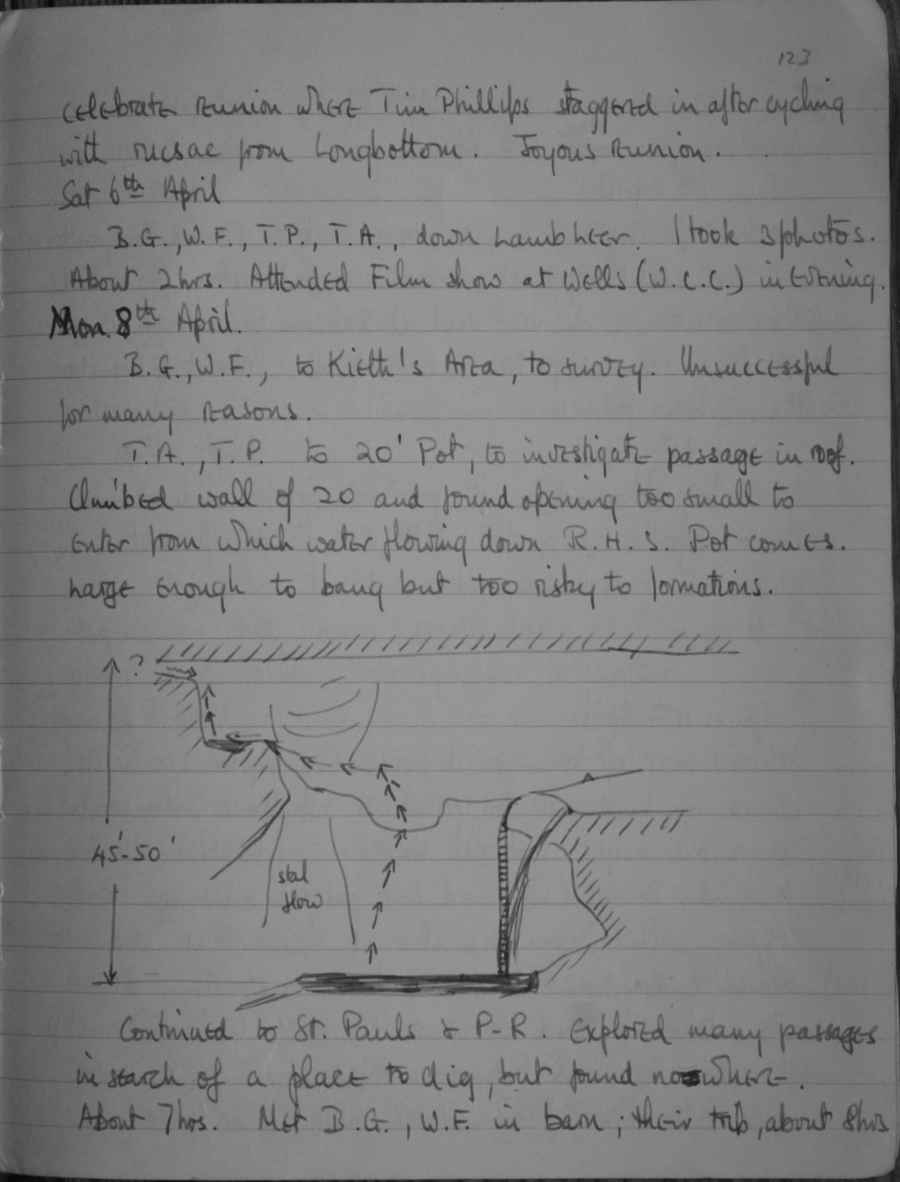 123
celebrate reunion where Tim Phillips staggered in after cycling
with rucsac from Longbottom. Joyous reunion.
Sat 6th April
B.G., W.F., T.P., T.A., down Lamb Leer. I took 3 photos.
About 2hrs. Attended Film show at Wells (W.C.C.) in Evening.
Mon. 8th April.
B.G., W.F., to Kieth's Area, to survey. Unsuccessful
for many reasons.
T.A., T.P. to 20' Pot, to investigate passage in roof.
Climbed wall of 20 and found opening too small to
enter from which water flowing down R.H.S. Pot comes.
Large enough to bang but too risky to formations.
?
45'-50'
stal
flow
Continued to St. Pauls & P-R. Explored many passages
in search of a place to dig, but found nowhere.
About 7hrs. Met B.G., W.F. in barn; their trip, about 8hrs